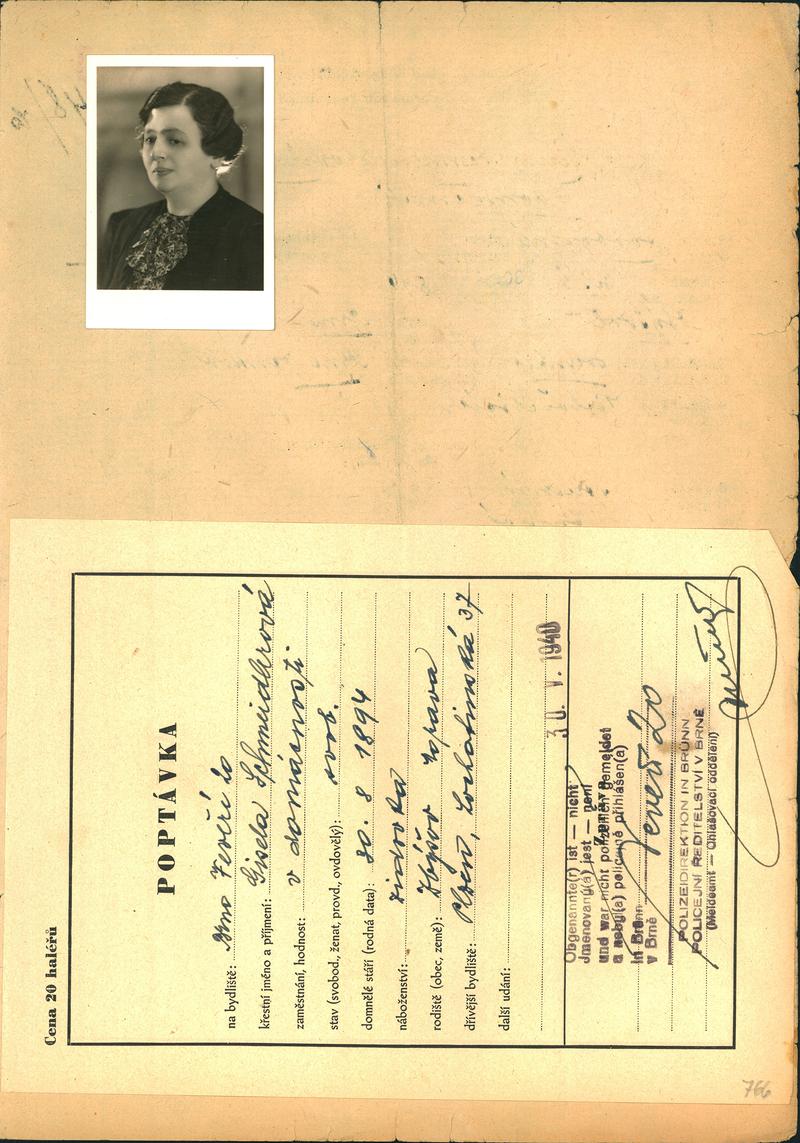 Cena 20 haléřů
POPTÁVKA
na bydliště: Brno
křestní jméno a příjmení: Gisela Schneidrová
zaměstnání, hodnost: v domácnosti
stav (svobod., ženat, provd., ovdovělý): svob.
domnělé stáří (rodná data): 20. 8 1894
náboženství: židovka
rodiště (obec, země): Morava
dřívější bydliště: Plzeň, Lochotínská 37
další udání:
30. V. 1940
Obgenannte(r) ist — nicht
Jmenovaný(á) jest — není
und war nicht polizeilich gemeldet
a nebyl(a) policejně přihlášen(a)
in Brünn
v Brně
POLIZEIDIREKTION IN BRÜNN
POLICEJNÍ ŘEDITELSTVÍ V BRNĚ
(Meldeamt — Ohlašovací oddělení)
766